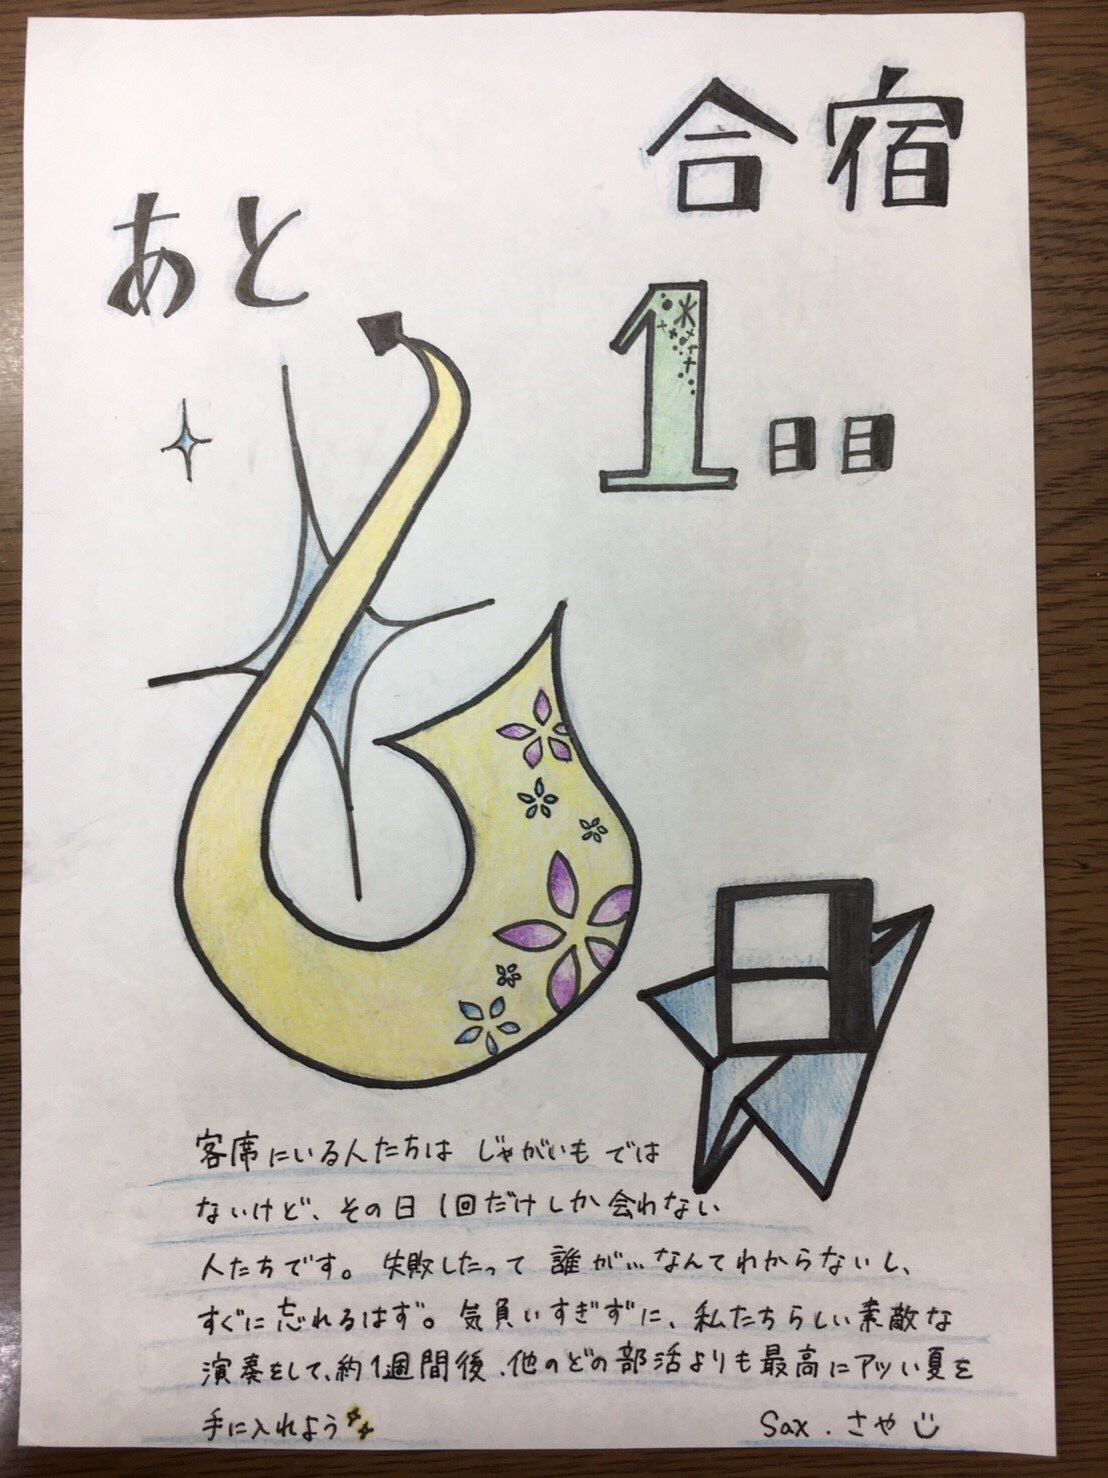 合宿
1日目
あと
6
日
客席にいる人たちは じゃがいも では
ないけど、その日 1回だけしか会わない
人たちです。失敗したって 誰が…なんてわからないし、
すぐに忘れるはず。気負いすぎずに、私たちらしい素敵な
演奏をして、約1週間後、他のどの部活よりも最高にアツい夏を
手に入れよう
Sax. さや